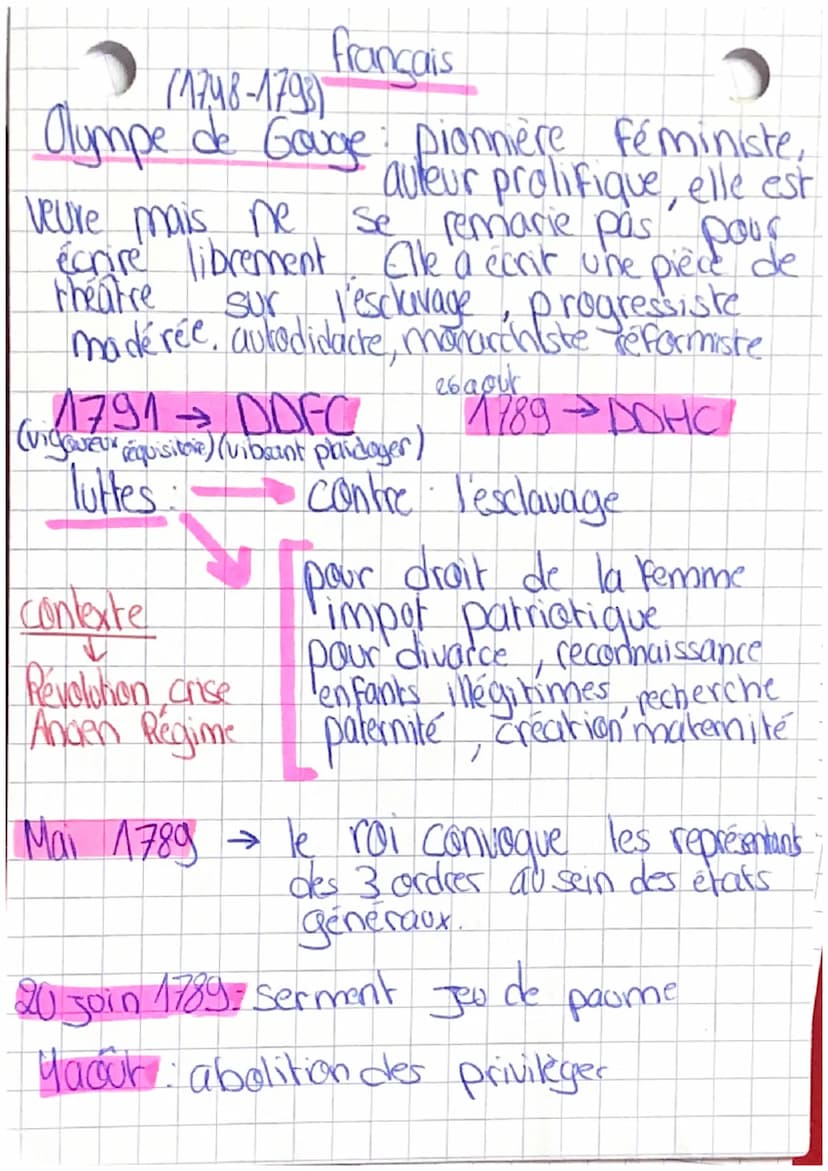 français
(1748-1793)
Olympe de Gouge : pionnière féministe,
auteur prolifique, elle est
veuve mais ne se remarie pas pour
écrire librement. Elle a écrit une pièce de
théâtre sur l'esclavage, progressiste
modérée, autodidacte, monarchiste réformiste
26 août
1791 → DDFC 1789 → DDHC
(vigoureux réquisitoire) (vibrant plaidoyer)
luttes : → contre : l'esclavage
pour droit de la femme
impot patriotique
pour divorce, reconnaissance
enfants illégitimes, recherche
paternité, création maternité
contexte
↓
Révolution, crise
Ancien Régime
Mai 1789 → le roi convoque les représentants
des 3 ordres au sein des états
généraux.
20 join 1789: serment jeu de paume
4 août : abolition des privilèges